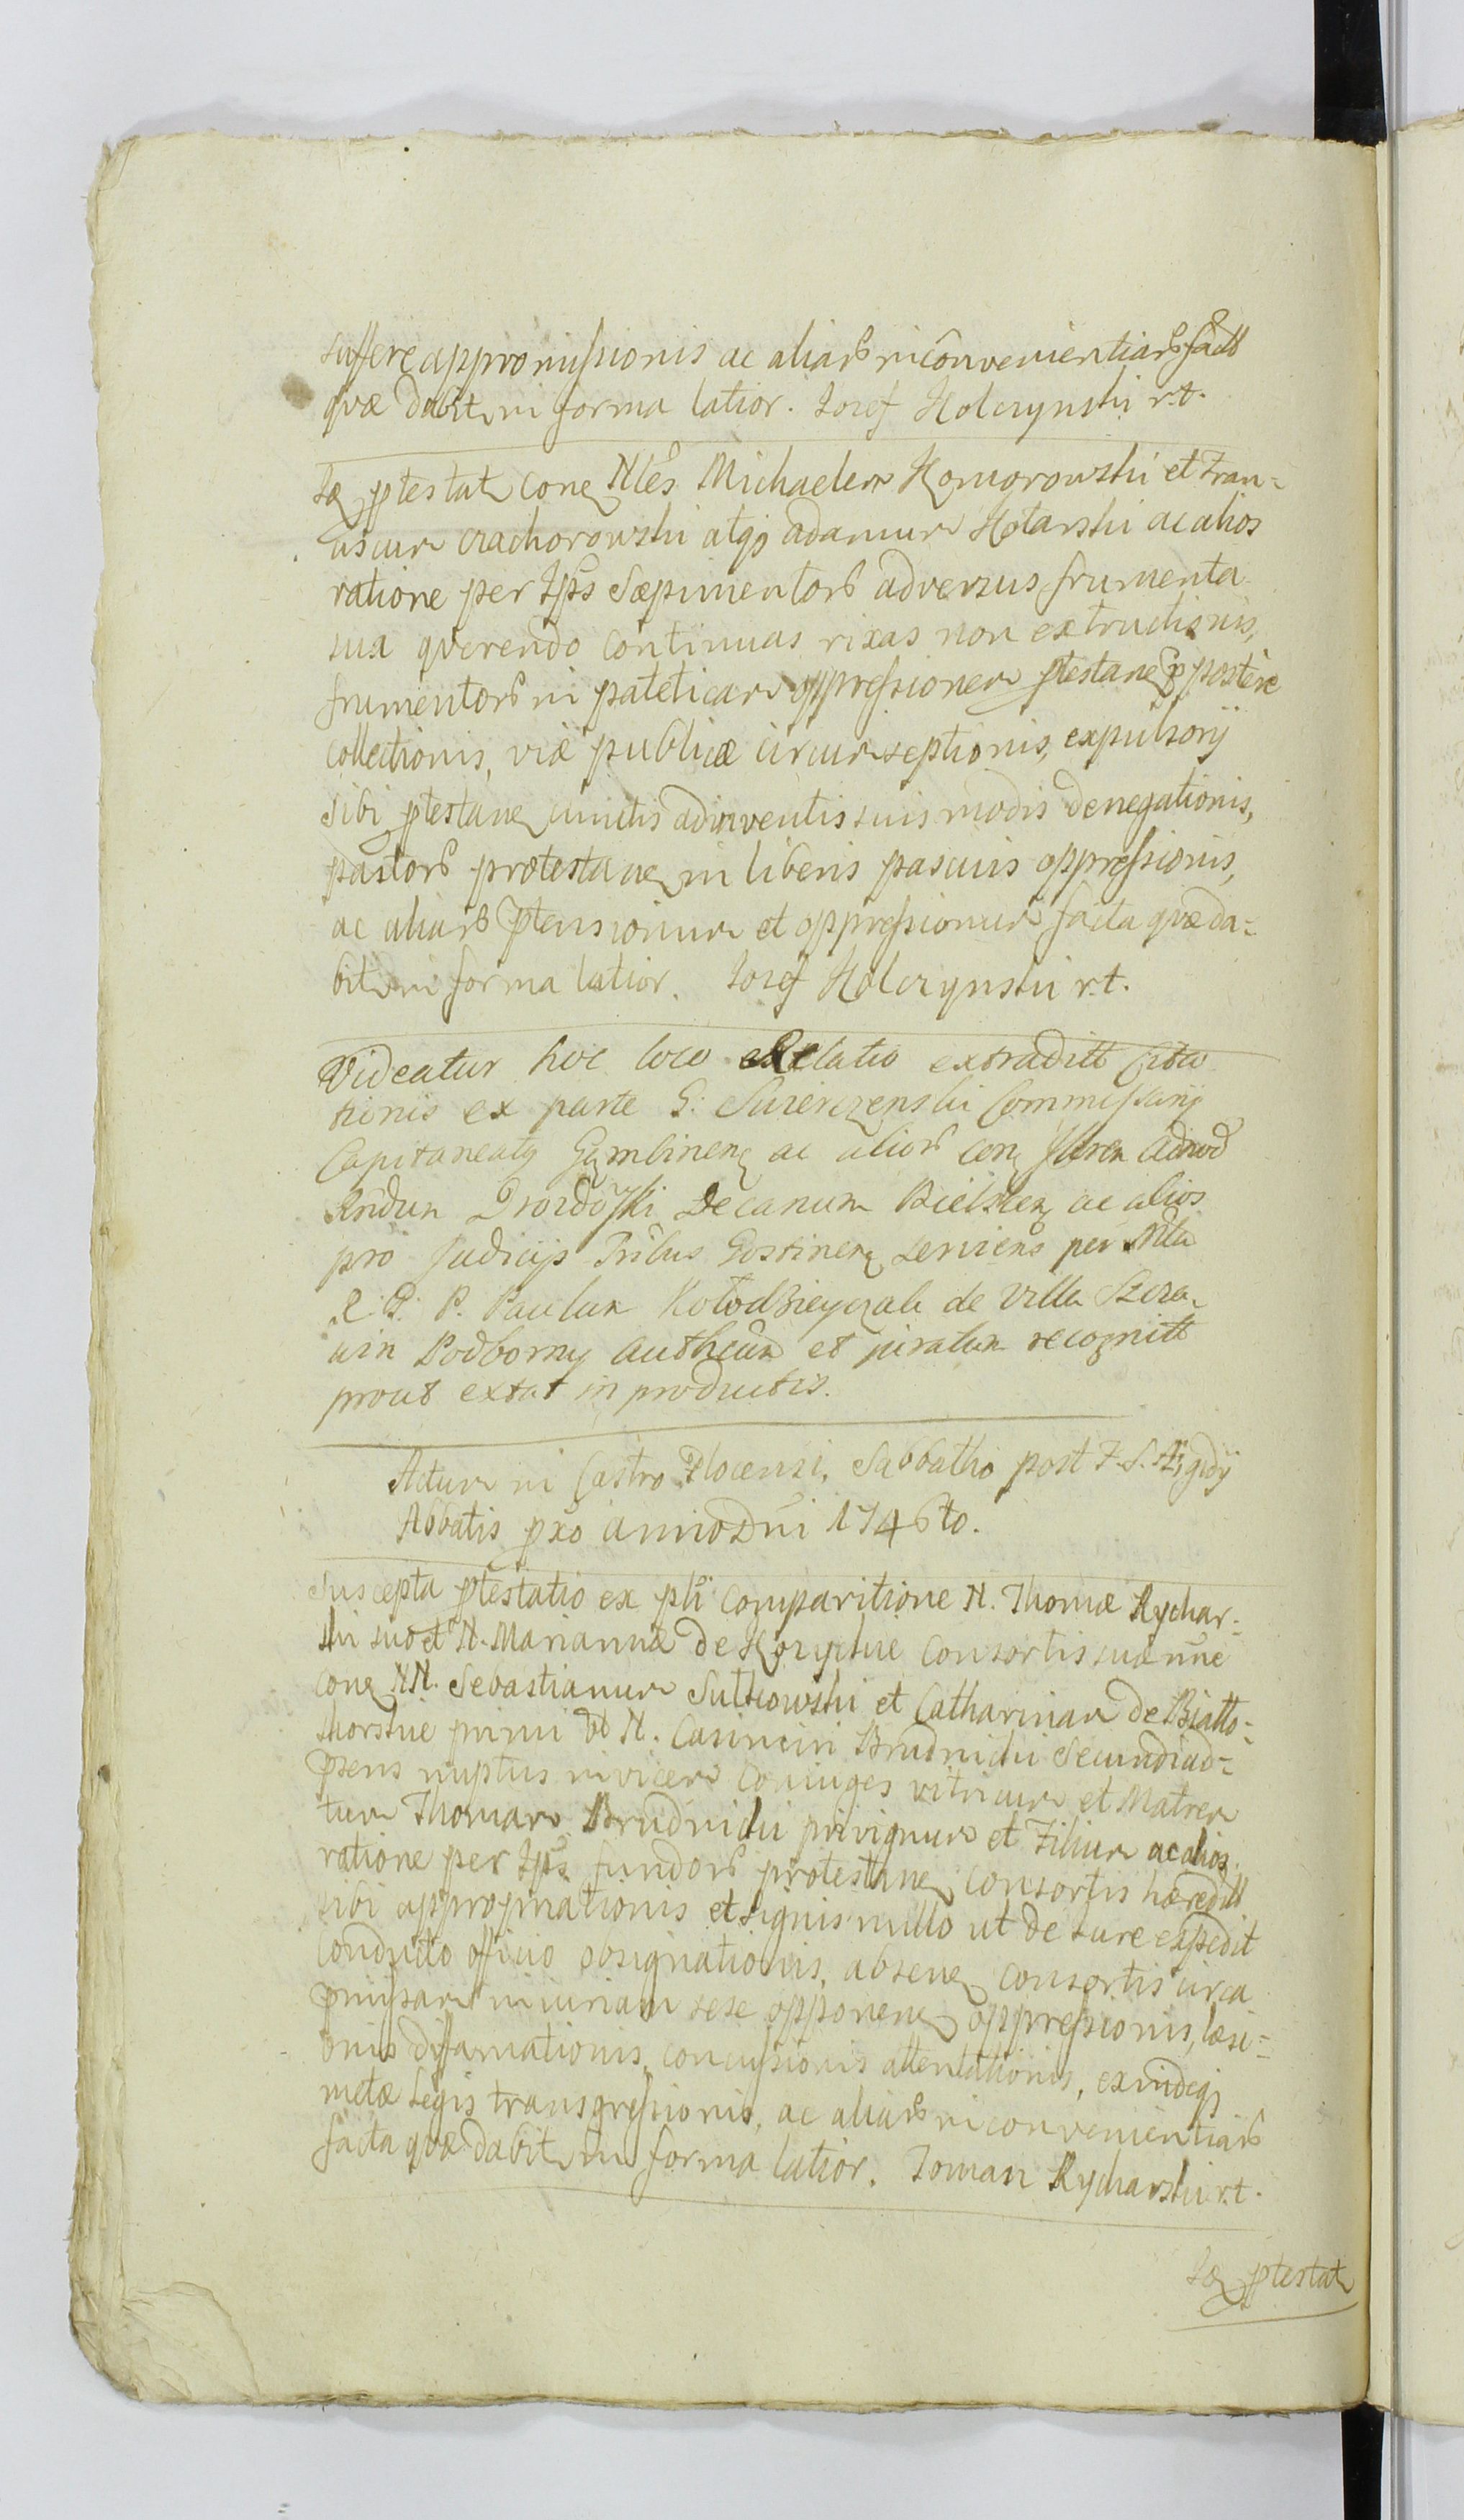 suffere appromissionis ac aliar inconvenientiar fact
quæ dabit in forma latior. Iozef Holczynski r.t.
Iq ptestat conq Nles Michaelem Komorowski et Fran-
ciscum Czachorowski atq adamum Kotarski ac alios
ratione per Ips Sæpimentor adversus frumenta
sua querendo continuas rixas non extructionis,
frumentor in pateticam oppressionem ptestanq postere
collectionis, viæ publicæ circumseptionis, expulsorij
sibi ptestanq cunctis adinventis suis modis denegationis,
pastor protestanq in liberis pascuis oppressionis,
ac aliar ptensionum et oppressionum facta quæ da-
bit in forma latior. Iozef Holczynski r.t.
Videatur hoc loco Relatio extraditt Cita
tionis ex parte G: Swierczenski Commissarij
Capitaneatq Gąmbinenq ac alior conq Illrem Admod
Rndum Drozdoski Decanum Bielskenq ac alios
pro Judicijs Tribus Gostinenq serviens per Mla
R. G. P. Paulum Kołodzieyczak de Villa
Podborny authcum et juratum recognitt
prout extat in productis.
Actum in Castro Plocensi, Sabbatho post F. S. Ægidij
Abbatis pxo anno Dni 1746to.
Suscepta ptestatio ex pli comparitione N. Thomæ Rychar-
ski suo et N. Mariannæ de Korzyckie consortis suæ nne
conq NN. Sebastianum Sutkowski et Catharinam de Biatto-
skorskie primi vt N. Casimiri Brudnicki secundi ad-
psens nuptus invicem coniuges vitricum et Matrem
tum Thomam Brudnicki privignum et Filium ac alios
ratione per Ips fundor protestanq consortis hæreditt
sibi appropriationis et signis nullo ut de iure expedit
conducto officio obsignationis, absenq consortis circa
pmissam iniuriam sese opponenq oppressionis, læsi-
onis diffamationis, concussionis attentationis, exindeq
metæ legis transgressionis, ac aliar inconvenientiar
facta quæ dabit in forma latior. Toman Rycharski r.t.
Iq ptestat